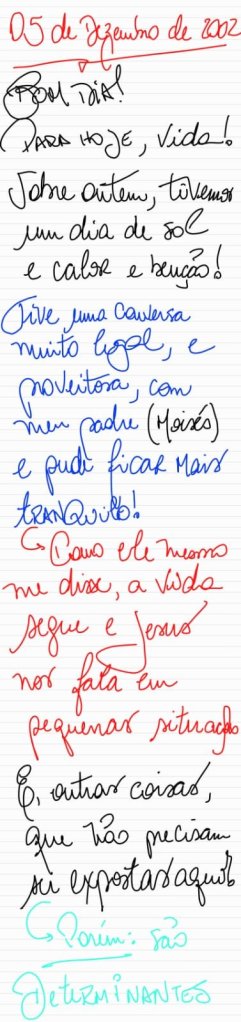 05 de Dezembro de 2002
BOM DIA!
PARA HOJE, Vida!
Sobre ontem, tivemos
um dia de sol
e calor e benção!
Tive uma conversa
muito legal, e
proveitosa, com
meu padre (Moisés)
e pude FICAR MAIS
TRANQUILO!
Como ele mesmo
me disse, a vida
segue e Jesus
nos fala em
pequenas situações
E, outras coisas,
que não precisam
ser expostas aqui!
Porém: são
DETERMINANTES